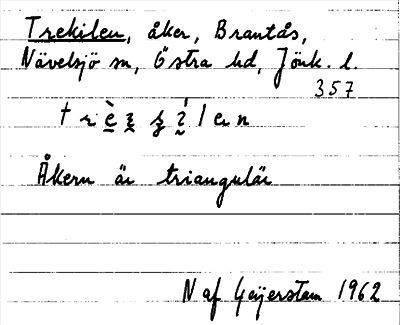 Trekilen, åker, Brantås,
Nävelsjö sn, Östra hd, Jönk. l.
357
Åkern är triangulär
N af Geijerstam 1962